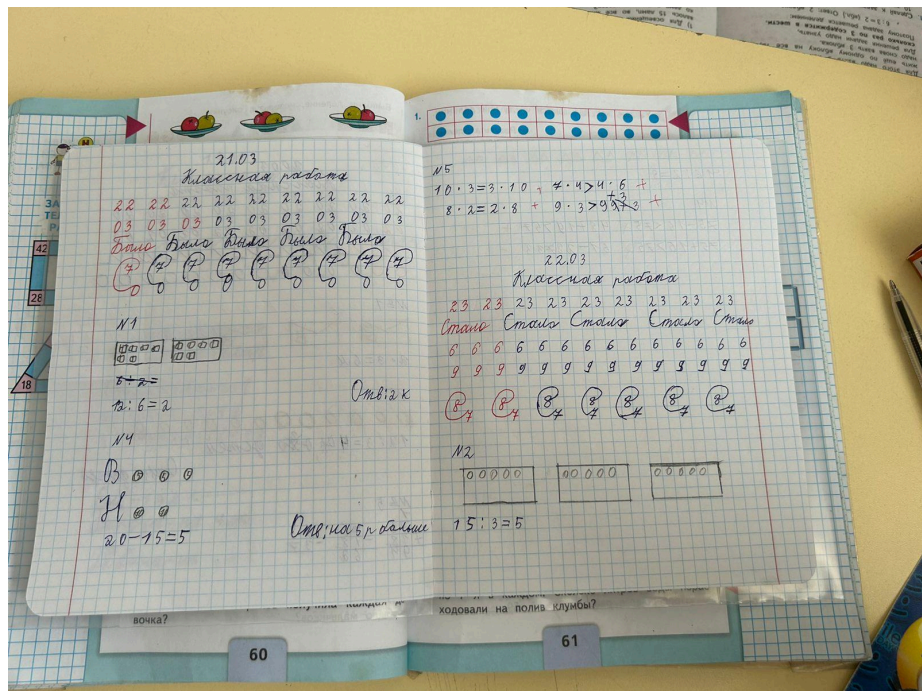 21.03
Классная работа
22 22 22 22 22 22 22 22 22
03 03 03 03 03 03 03 03 03
Было Было Было Было Было
7 7 7 7 7 7 7 7
0 0 0 0 0 0 0 0
N1
6+2=
12:6=2
Отв: 2 к
N4
В
Н
20-15=5
Отв: на 5 р больше
N5
10·3=3·10 + 7·4>4·6 +
8·2=2·8 + 9·3>9
22.03
Классная работа
23 23 23 23 23 23 23 23 23
Стало Стало Стало Стало Стало
6 6 6 6 6 6 6 6 6 6 6 6 6
9 9 9 9 9 9 9 9 9 9 9 9 9
8 8 8 8 8 8 8
7 7 7 7 7 7 7
N2
15:3=5
1.
42
28
18
вочка?
ходовали на полив клумбы?
60
61